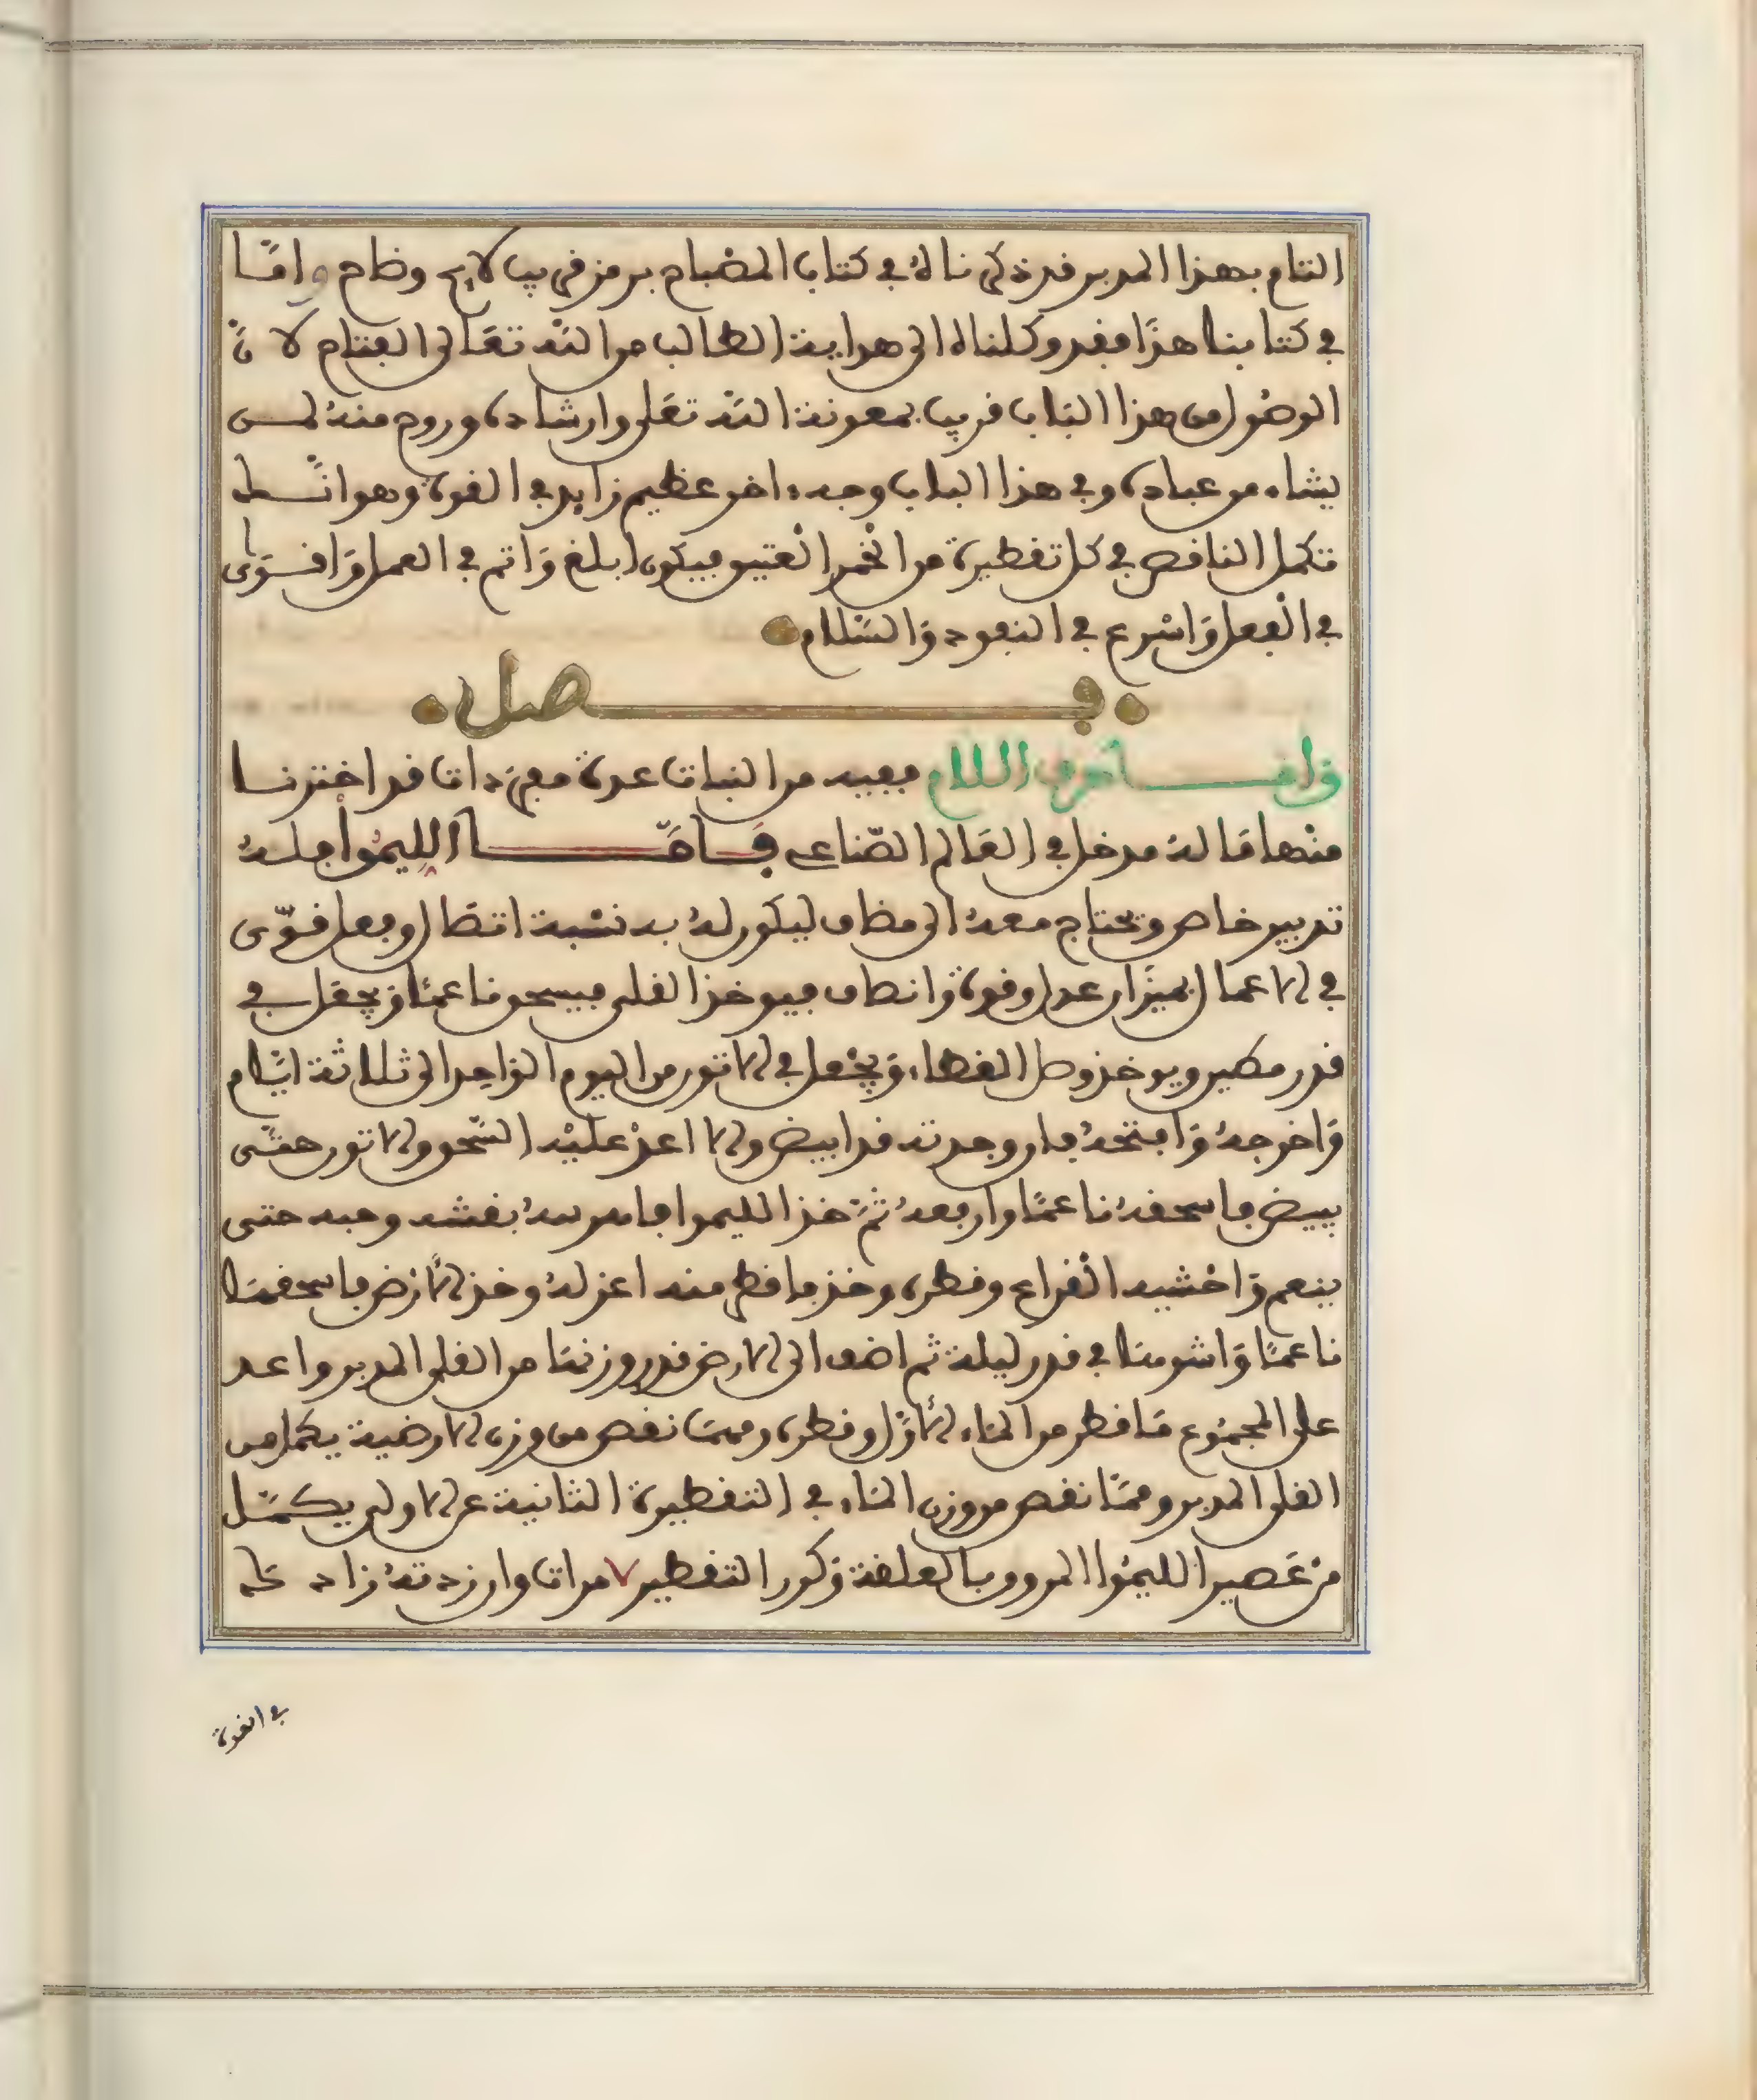 التام بهذا المدبر قد ذكرناه في كتاب المصباح برمز قريب لايح وظاهر واما
في كتابنا هذا فقد وكلناه الى هداية الطالب من الله تعالى الفتاح لان
الوصول من هذا الباب قريب بمعونة الله تعلى وارشاده وروح منه لمـن
يشاء من عباده وفي هذا الباب وجه اخر عظيم زايد في القوة وهو انـك
تكمل الناقص في كل تقطيرة من الخمر العتيق فيكون ابلغ وَاتم في العمل وَاقـوى
في الْفعل وَاسْرع في النفوذ وَالسّلام
فـــــصل
وَامـــا حرف اللام ففيه من النبات عدة مفردات قد اخترنـا
منْها مَا له مدخل في العَالم الصّناعي فَـــامّــــا الليمُوا فلهُ
تدبير خاص ويحتاج معهُ الى مضاف ليكون لهُ به نسْبة اتصَال وفعل قـوّى
في الاعمال بميزان عدل وقوة وَانصاف فيوخذ القلى فيسحق ناعمًا وَيجعَل في
قدر مطين ويوخذ وصل الغطاء وَيجْعل في الاتون من اليوم الوَاحِد الى ثلاثة ايَّام
وَاخرجهُ وَافتحهُ فان وجدته قد ابيض والا اعدْ عليْه السّحق والاتون حتّـى
يبيض فاسحقهُ ناعمًا وارفعهُ ثُمّ خذ الليموا فامرسهُ بقشره وحبه حتى
ينعم وَاحْشيه الْقراع وقطره وخذ ما قطر منه اعزلهُ وخذ الارْض فاسحقهَا
ناعمًا وَاشوهَا في قدر ليلة ثم اضف الى الارض قدر وزنهَا من القلى المدبر واعد
على المجمُوع مَا قطر من المَاء الاوَّل وقطره ومهمَا نقص من وزن الارضية يكمل من
القلى المدبر ومهمَا نقص من وزن المَاء في التقطيرة الثانية عن الاولى يكمّـل
منْ عَصير الليمُوا المروق بالعلقة وَكرر التقطير ٧ مرات وان زدتهُ زاد لك
في القوة